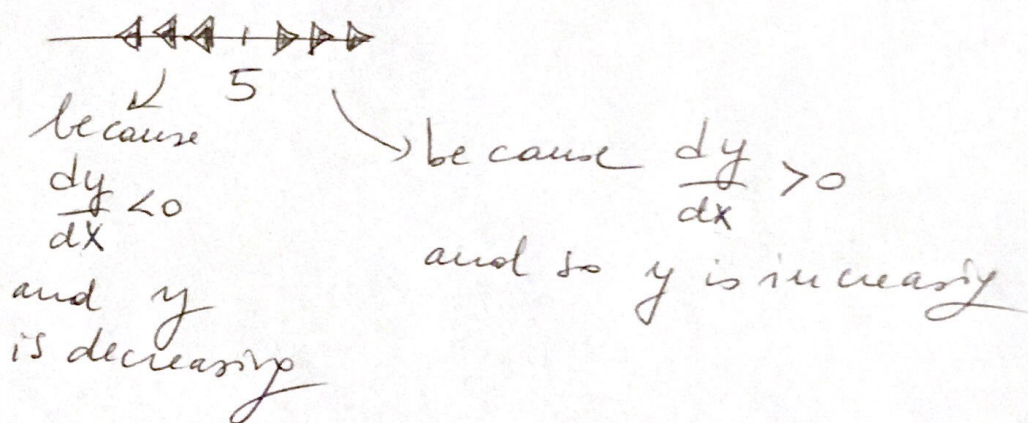 5
because
dy/dx < 0
and y
is decreasing
because dy/dx > 0
and so y is increasig